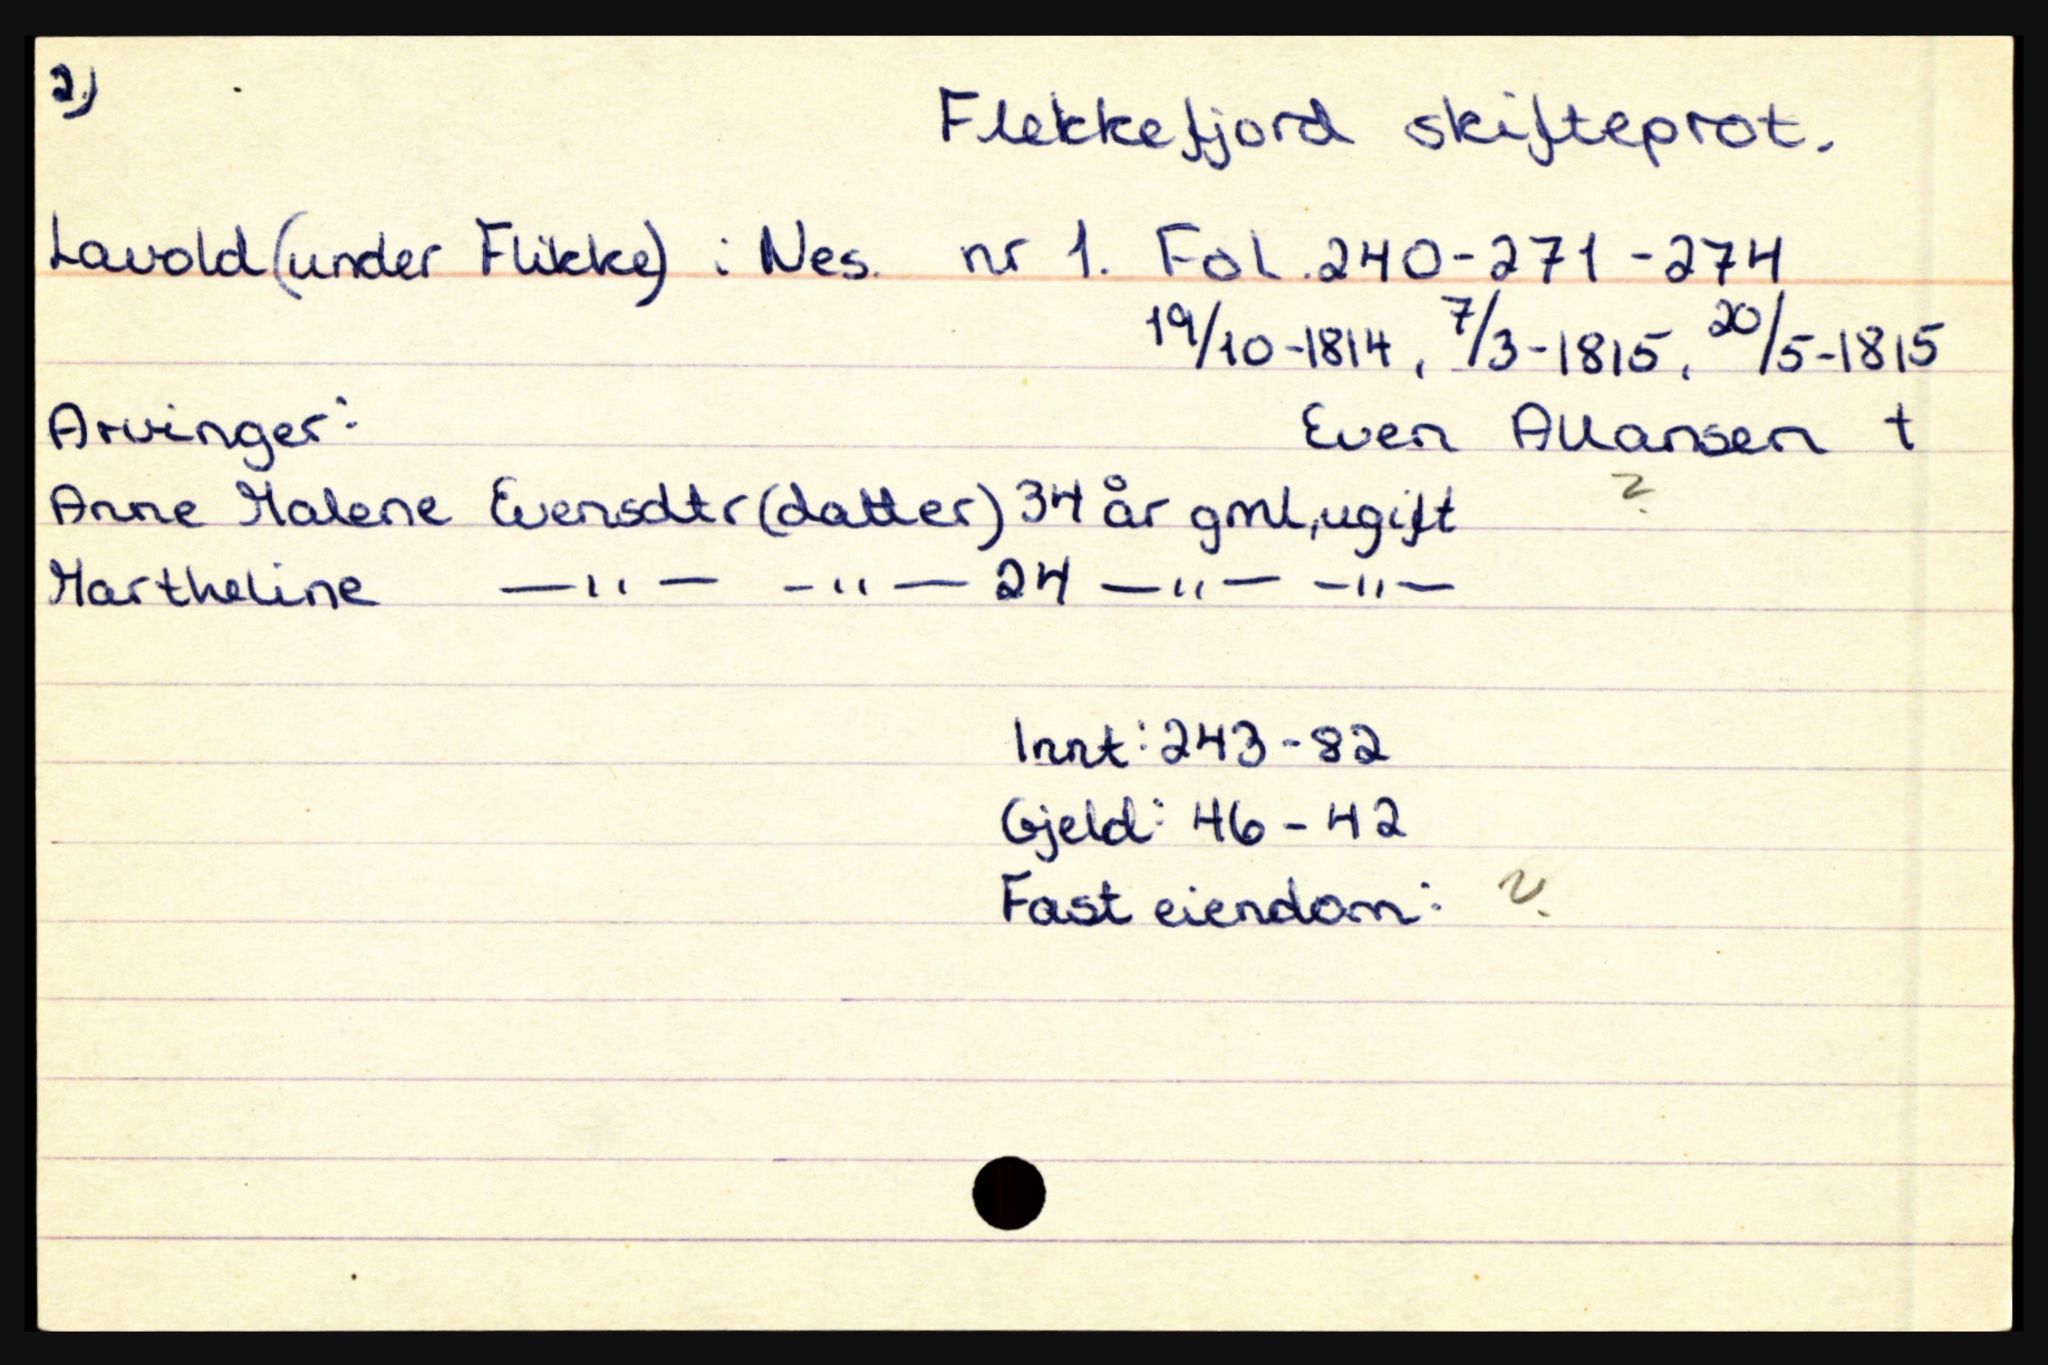 2)
Flekkefjord skifteprot.
Lavold (under Flikke) i Nes. nr 1. Fol. 240-271-274
19/10-1814, 7/3-1815, 20/5-1815
Arvinger: Even Allansen †
Anne Malene Evensdtr (datter) 34 år gml, ugift ?
Martheline —"— —"— 24 —"— —"—
Innt: 243-82
Gjeld: 46-42
Fast eiendom: ?